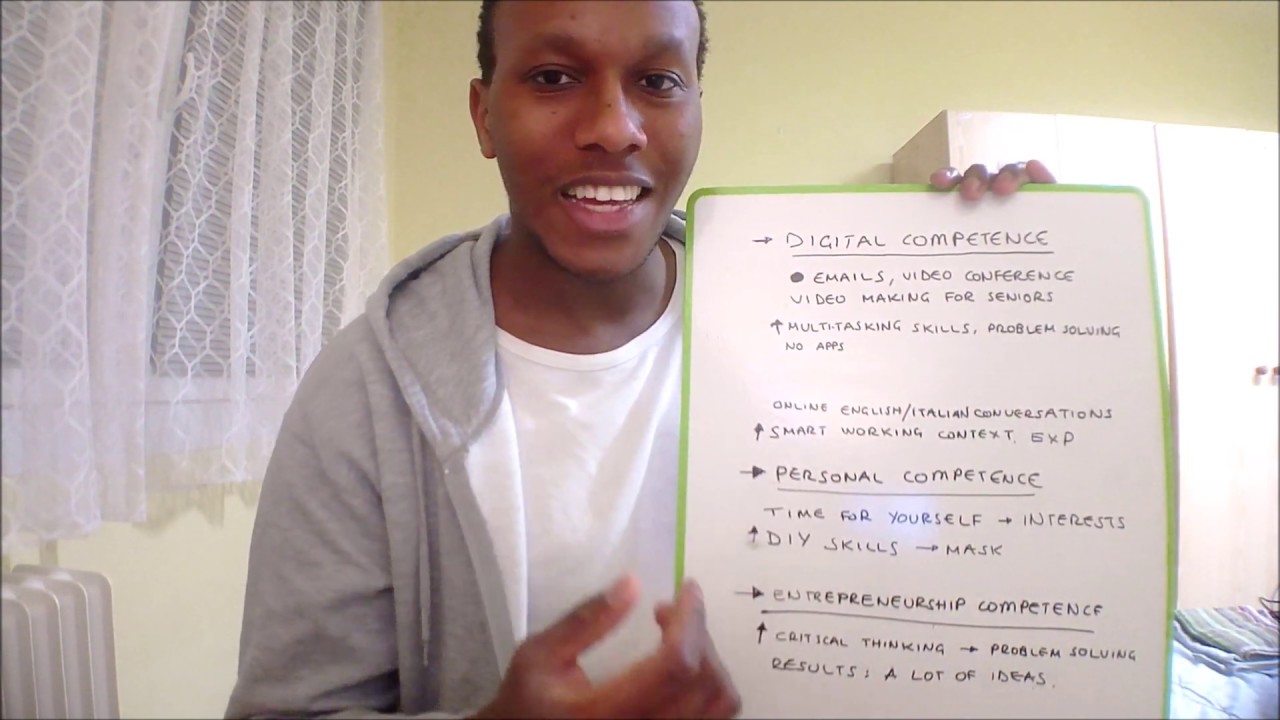 → DIGITAL COMPETENCE
● EMAILS, VIDEO CONFERENCE
VIDEO MAKING FOR SENIORS
↑ MULTI-TASKING SKILLS, PROBLEM SOLVING
NO APPS
ONLINE ENGLISH/ITALIAN CONVERSATIONS
↑ SMART WORKING CONTEXT. EXP
→ PERSONAL COMPETENCE
TIME FOR YOURSELF → INTERESTS
↑ DIY SKILLS → MASK
→ ENTREPRENEURSHIP COMPETENCE
↑ CRITICAL THINKING → PROBLEM SOLVING
RESULTS: A LOT OF IDEAS.